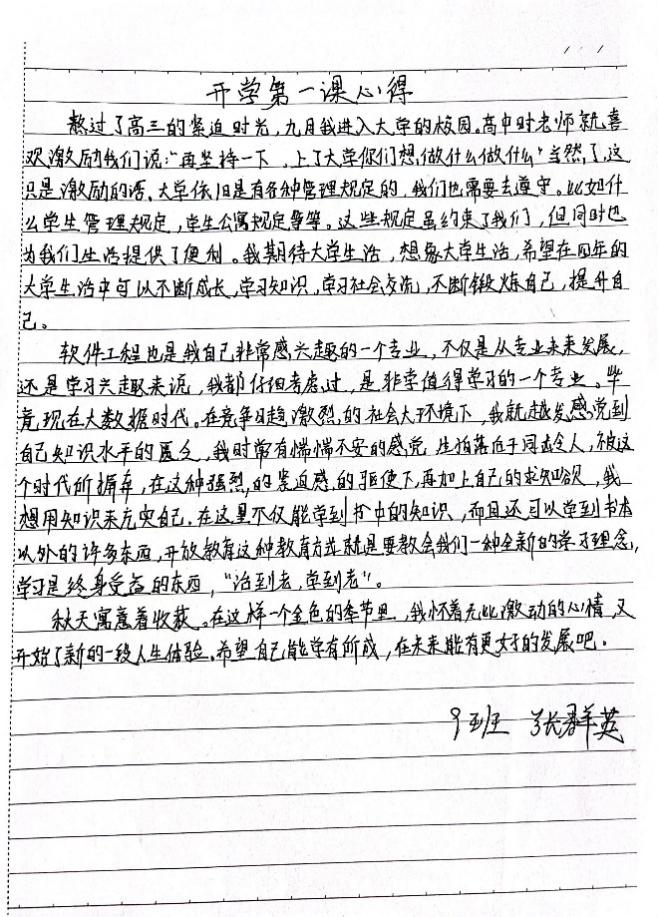 开学第一课心得
熬过了高三的紧迫时光,九月我进入大学的校园。高中时老师就喜
欢激励我们说:“再坚持一下,上了大学你们想做什么做什么”当然了,这
只是激励的话,大学依旧是有各种管理规定的,我们也需要去遵守。比如什
么学生管理规定,学生公寓规定等等。这些规定虽约束了我们,但同时也
为我们生活提供了便利。我期待大学生活,想象大学生活,希望在四年的
大学生活中可以不断成长,学习知识,学习社会交流,不断锻炼自己,提升自
己。
软件工程也是我自己非常感兴趣的一个专业,不仅是从专业未来发展,
还是学习兴趣来说,我都仔细考虑过,是非常值得学习的一个专业。毕
竟现在大数据时代。在竞争日趋激烈的社会大环境下,我就越发感觉到
自己知识水平的匮乏,我时常有惴惴不安的感觉,生怕落后于同龄人,被这
个时代所摒弃,在这种强烈的紧迫感的驱使下,再加上自己的求知欲,我
想用知识来充实自己。在这里不仅能学到书中的知识,而且还可以学到书本
以外的许多东西,开放教育这种教育方式就是要教会我们一种全新的学习理念,
学习是终身受益的东西,“活到老,学到老”。
秋天寓意着收获。在这样一个金色的季节里,我怀着无比激动的心情,又
开始了新的一段人生体验。希望自己能学有所成,在未来能有更好的发展吧。
9班 张群英